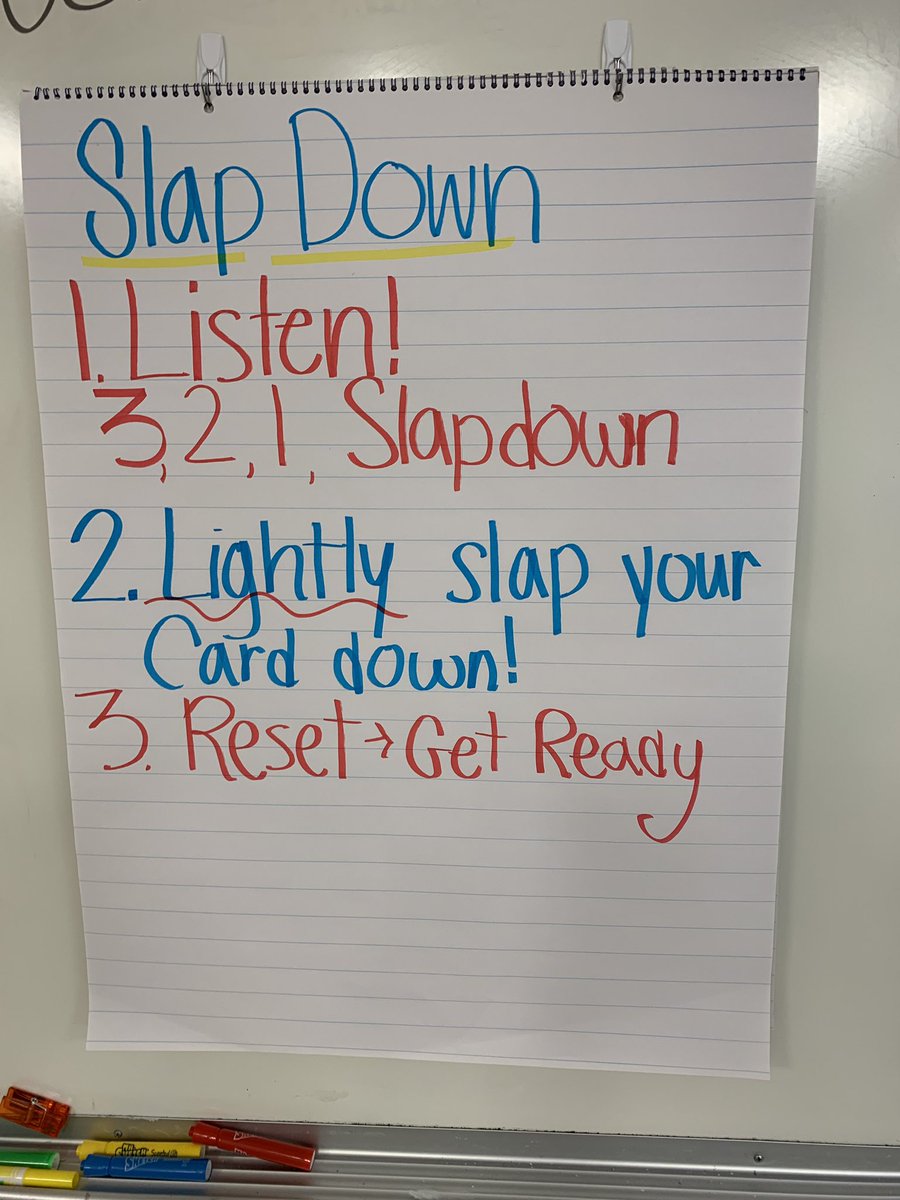 Slap Down
1. Listen!
3, 2, 1, Slapdown
2. Lightly slap your
Card down!
3. Reset → Get Ready